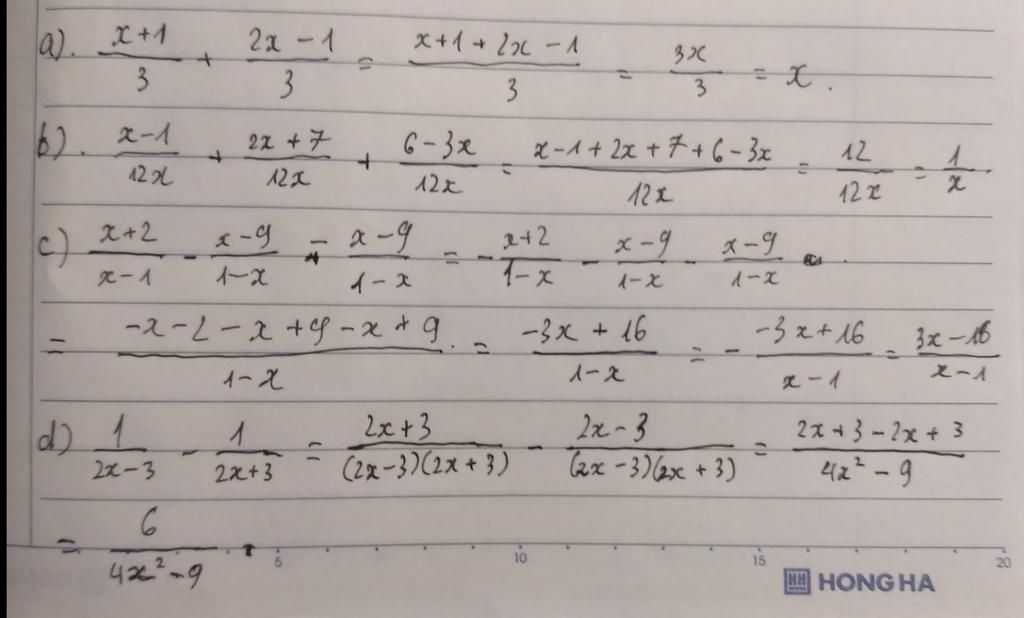 a). \frac{x+1}{3} + \frac{2x-1}{3} = \frac{x+1+2x-1}{3} = \frac{3x}{3} = x.
b). \frac{x-1}{12x} + \frac{2x+7}{12x} + \frac{6-3x}{12x} = \frac{x-1+2x+7+6-3x}{12x} = \frac{12}{12x} = \frac{1}{x}.
c) \frac{x+2}{x-1} - \frac{x-9}{1-x} - \frac{x-9}{1-x} = -\frac{x+2}{1-x} - \frac{x-9}{1-x} - \frac{x-9}{1-x}
= \frac{-x-2-x+9-x+9}{1-x} = \frac{-3x+16}{1-x} = -\frac{-3x+16}{x-1} = \frac{3x-16}{x-1}
d) \frac{1}{2x-3} - \frac{1}{2x+3} = \frac{2x+3}{(2x-3)(2x+3)} - \frac{2x-3}{(2x-3)(2x+3)} = \frac{2x+3-2x+3}{4x^2-9}
= \frac{6}{4x^2-9}.
5 10 15 20
HH HONG HA